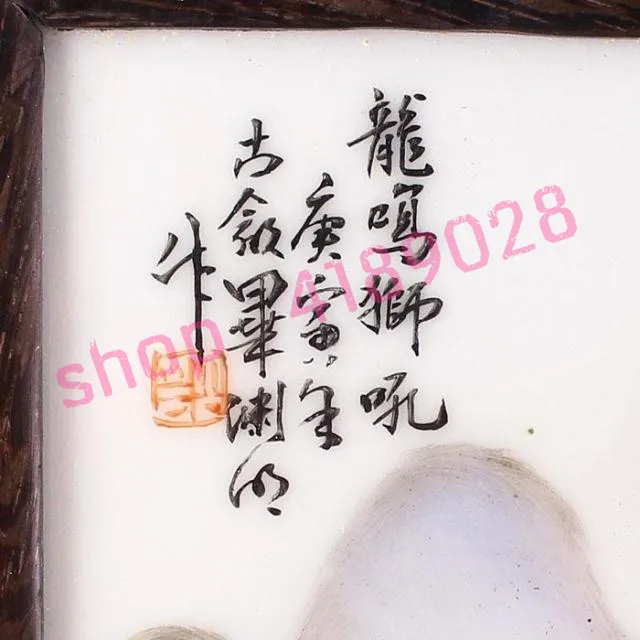 龍鳴獅吼
庚寅年
古歙畢淵明
作
shop 4189028